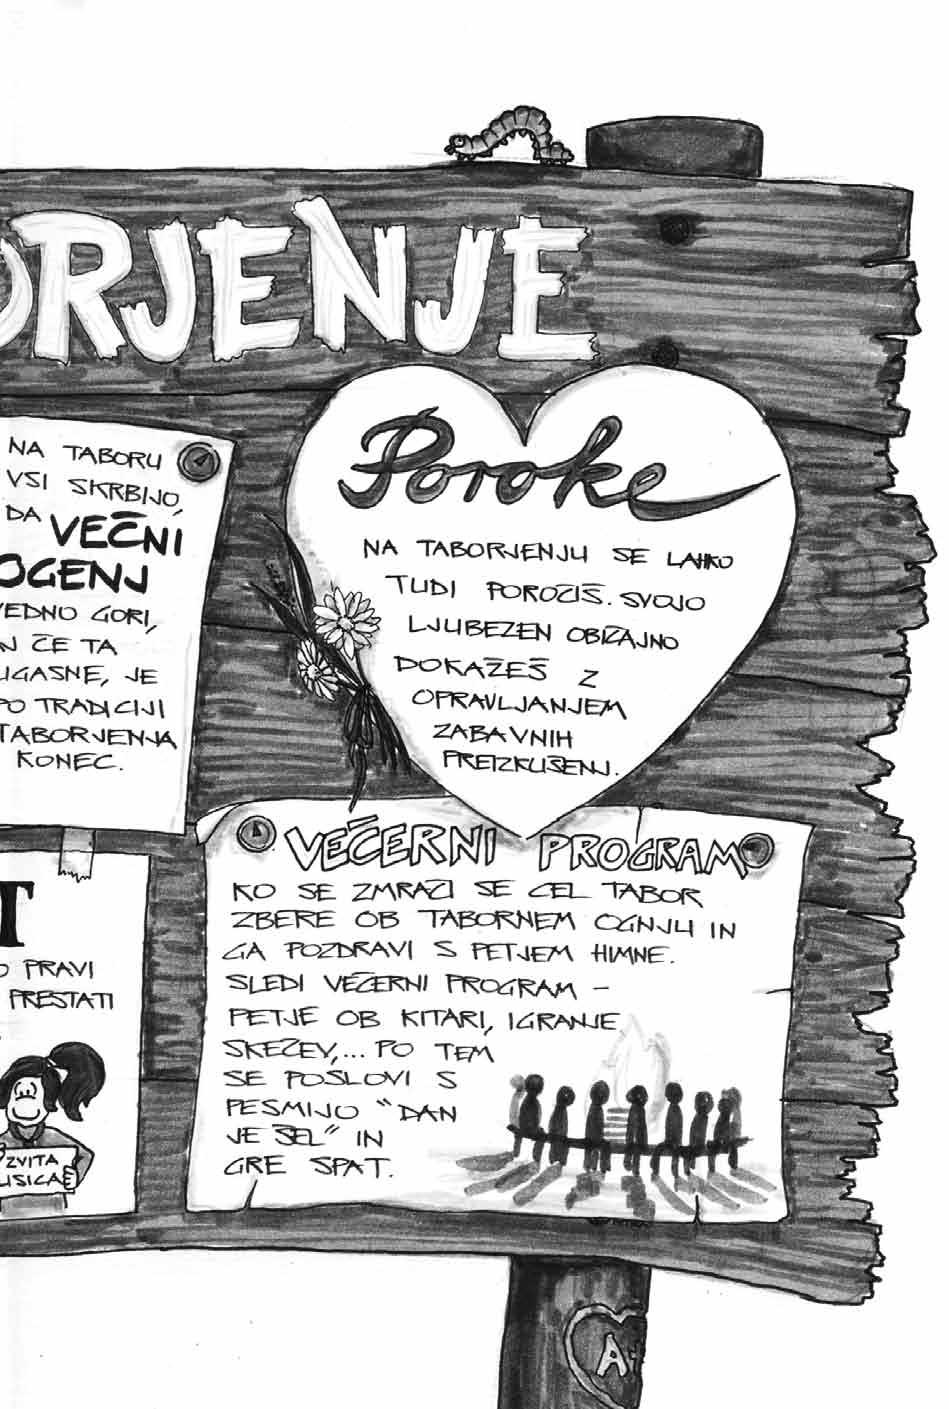 ORJENJE
NA TABORU
VSI SKRBIJO,
DA VEČNI
OGENJ
VEDNO GORI,
N ČE TA
UGASNE, JE
PO TRADICIJI
TABORJENJA
KONEC.
Poroke
NA TABORJENJU SE LAHKO
TUDI POROČIŠ. SVOJO
LJUBEZEN OBIČAJNO
DOKAŽEŠ Z
OPRAVLJANJEM
ZABAVNIH
PREIZKUŠENJ.
T
O PRAVI
PRESTATI
ZVITA
LISICA
VEČERNI PROGRAM
KO SE ZMRAČI SE CEL TABOR
ZBERE OB TABORNEM OGNJU IN
GA POZDRAVI S PETJEM HIMNE.
SLEDI VEČERNI PROGRAM –
PETJE OB KITARI, IGRANJE
SKEČEV,... PO TEM
SE POSLOVI S
PESMIJO "DAN
JE ŠEL" IN
GRE SPAT.
A+